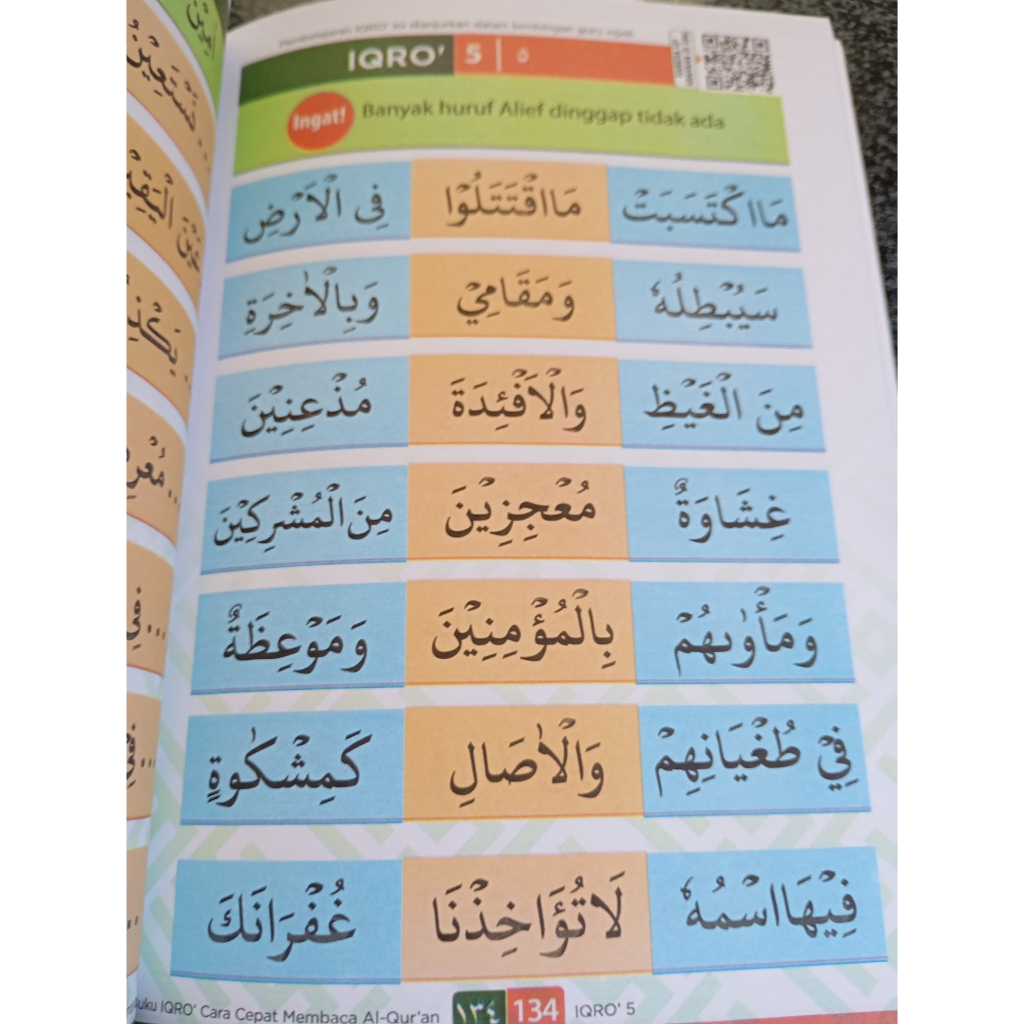 Pembelajaran IQRO' ini dianjurkan dalam bimbingan guru ngaji
IQRO' 5 | ٥
Ingat! Banyak huruf Alief dinggap tidak ada
مَااكْتَسَبَتْ مَااقْتَتَلُوْا فِى الْاَرْضِ
سَيُبْطِلُهٗ وَمَقَامِيْ وَبِالْاٰخِرَةِ
مِنَ الْغَيْظِ وَالْاَفْئِدَةَ مُذْعِنِيْنَ
غِشَاوَةٌ مُعْجِزِيْنَ مِنَ الْمُشْرِكِيْنَ
وَمَأْوٰىهُمْ بِالْمُؤْمِنِيْنَ وَمَوْعِظَةٌ
فِيْ طُغْيَانِهِمْ وَالْاٰصَالِ كَمِشْكٰوةٍ
فِيْهَااسْمُهٗ لَاتُؤَاخِذْنَا غُفْرَانَكَ
Buku IQRO' Cara Cepat Membaca Al-Qur'an ١٣٤ 134 IQRO' 5